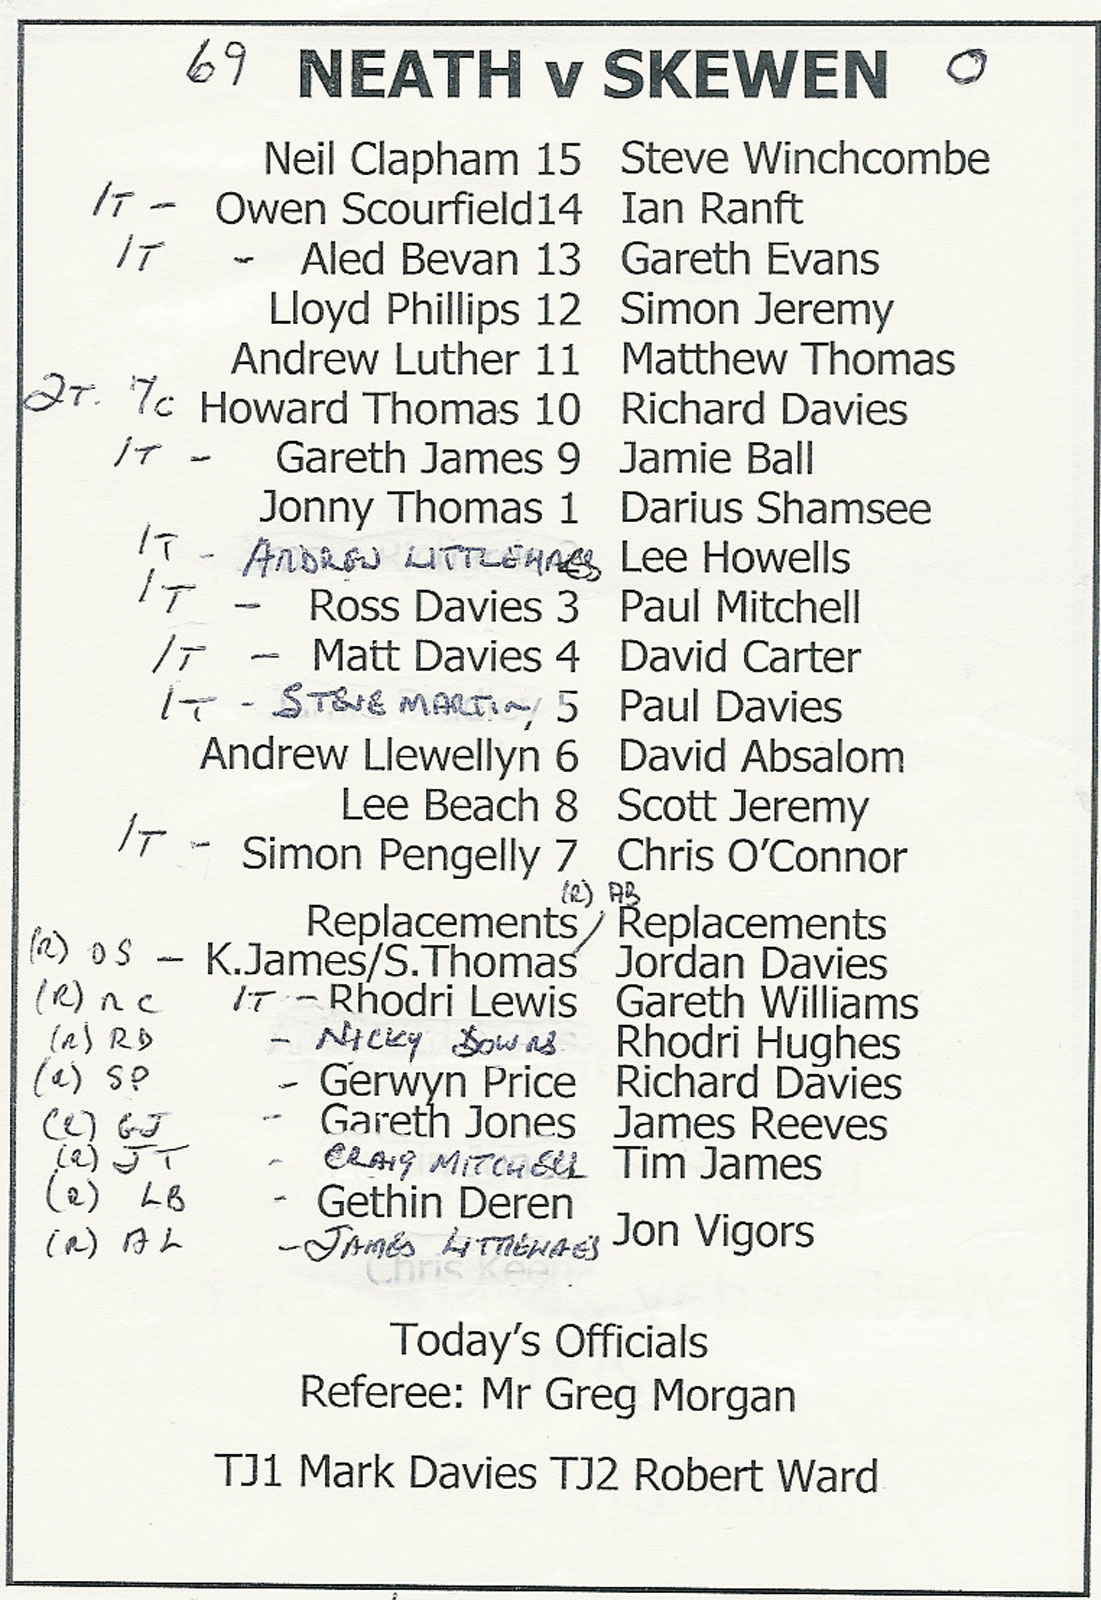 69 NEATH v SKEWEN 0
Neil Clapham 15 Steve Winchcombe
1T - Owen Scourfield14 Ian Ranft
1T - Aled Bevan 13 Gareth Evans
Lloyd Phillips 12 Simon Jeremy
Andrew Luther 11 Matthew Thomas
2T. 7c Howard Thomas 10 Richard Davies
1T - Gareth James 9 Jamie Ball
Jonny Thomas 1 Darius Shamsee
1T - ANDREW LITTLEHALES Lee Howells
1T - Ross Davies 3 Paul Mitchell
1T - Matt Davies 4 David Carter
1T - STEVE MARTIN, 5 Paul Davies
Andrew Llewellyn 6 David Absalom
Lee Beach 8 Scott Jeremy
1T - Simon Pengelly 7 Chris O'Connor
(R) AB
Replacements / Replacements
(R) OS - K.James/S.Thomas Jordan Davies
(R) NC 1T - Rhodri Lewis Gareth Williams
(R) RD - NICKY DOWNS Rhodri Hughes
(R) SP - Gerwyn Price Richard Davies
(R) GJ - Gareth Jones James Reeves
(R) JT - CRAIG MITCHELL Tim James
(R) LB - Gethin Deren
(R) AL - JAMES LITTLEHALES Jon Vigors
Today's Officials
Referee: Mr Greg Morgan
TJ1 Mark Davies TJ2 Robert Ward